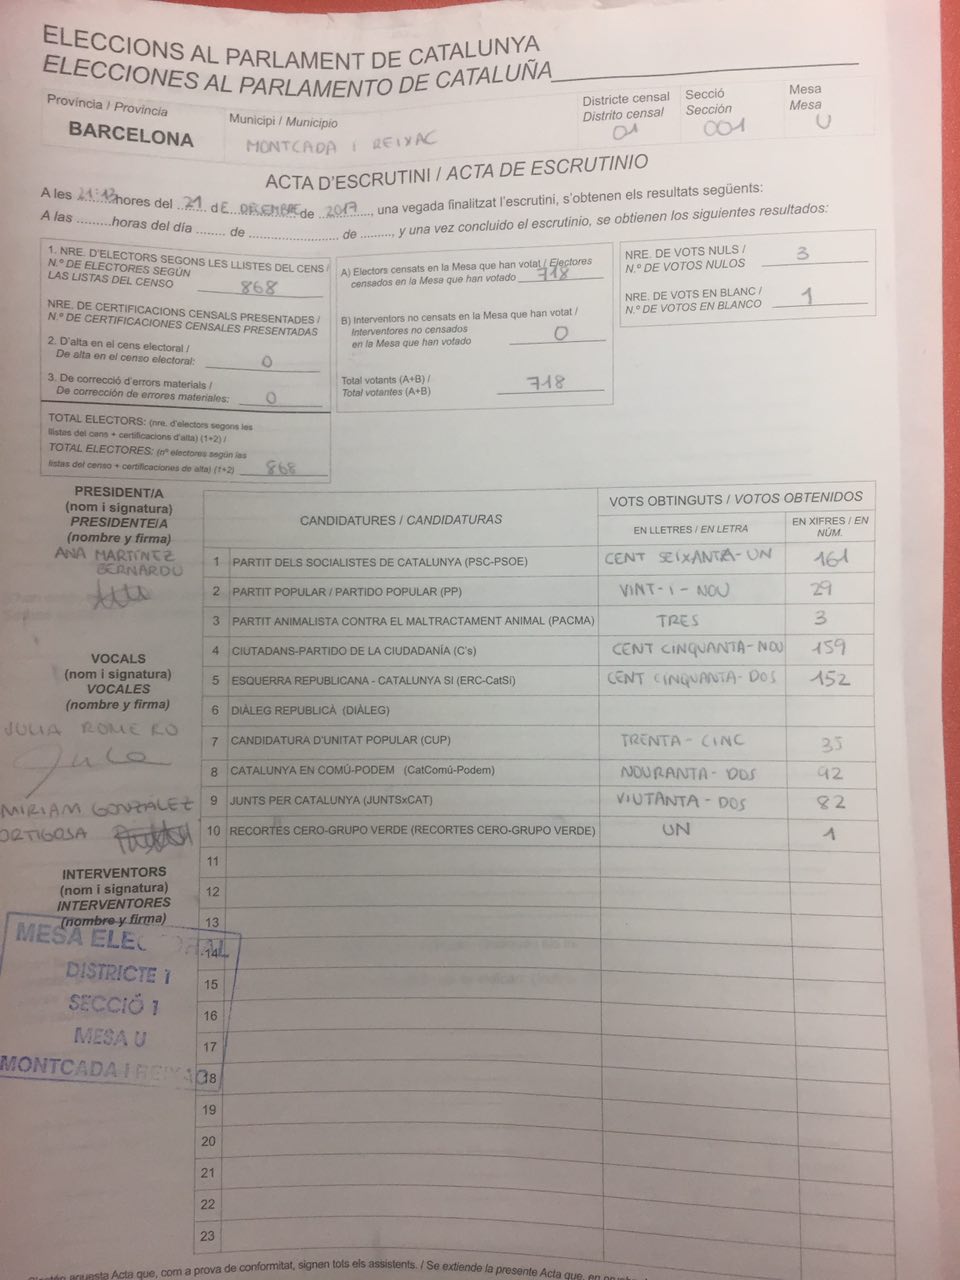 ELECCIONS AL PARLAMENT DE CATALUNYA
ELECCIONES AL PARLAMENTO DE CATALUÑA
Província / Provincia
BARCELONA
Municipi / Municipio
MONTCADA I REIXAC
Districte censal
Distrito censal
01
Secció
Sección
001
Mesa
Mesa
U
ACTA D'ESCRUTINI / ACTA DE ESCRUTINIO
A les 21:13 hores del 21 de DECEMBRE de 2017, una vegada finalitzat l'escrutini, s'obtenen els resultats següents:
A las .........horas del día ........ de ........................ de ........., y una vez concluido el escrutinio, se obtienen los siguientes resultados:
1. NRE. D'ELECTORS SEGONS LES LLISTES DEL CENS /
N.º DE ELECTORES SEGÚN
LAS LISTAS DEL CENSO 868
NRE. DE CERTIFICACIONS CENSALS PRESENTADES /
N.º DE CERTIFICACIONES CENSALES PRESENTADAS
2. D'alta en el cens electoral /
De alta en el censo electoral: 0
3. De correcció d'errors materials /
De corrección de errores materiales: 0
TOTAL ELECTORS: (nre. d'electors segons les
llistes del cens + certificacions d'alta) (1+2) /
TOTAL ELECTORES: (nº electores según las
listas del censo + certificaciones de alta) (1+2) 868
A) Electors censats en la Mesa que han votat / Electores
censados en la Mesa que han votado 718
B) Interventors no censats en la Mesa que han votat /
Interventores no censados
en la Mesa que han votado 0
Total votants (A+B) /
Total votantes (A+B) 718
NRE. DE VOTS NULS /
N.º DE VOTOS NULOS 3
NRE. DE VOTS EN BLANC /
N.º DE VOTOS EN BLANCO 1
PRESIDENT/A
(nom i signatura)
PRESIDENTE/A
(nombre y firma)
ANA MARTÍNEZ
BERNARDU
VOCALS
(nom i signatura)
VOCALES
(nombre y firma)
JULIA ROMERO
MIRIAM GONZALEZ
ORTIGOSA
INTERVENTORS
(nom i signatura)
INTERVENTORES
(nombre y firma)
MESA ELECTORAL
DISTRICTE 1
SECCIÓ 1
MESA U
MONTCADA I REIXAC
CANDIDATURES / CANDIDATURAS
VOTS OBTINGUTS / VOTOS OBTENIDOS
EN LLETRES / EN LETRA
EN XIFRES / EN NÚM.
1 PARTIT DELS SOCIALISTES DE CATALUNYA (PSC-PSOE) CENT SEIXANTA-UN 161
2 PARTIT POPULAR / PARTIDO POPULAR (PP) VINT-I-NOU 29
3 PARTIT ANIMALISTA CONTRA EL MALTRACTAMENT ANIMAL (PACMA) TRES 3
4 CIUTADANS-PARTIDO DE LA CIUDADANÍA (C's) CENT CINQUANTA-NOU 159
5 ESQUERRA REPUBLICANA - CATALUNYA SI (ERC-CatSí) CENT CINQUANTA-DOS 152
6 DIÀLEG REPUBLICÀ (DIÀLEG)
7 CANDIDATURA D'UNITAT POPULAR (CUP) TRENTA-CINC 35
8 CATALUNYA EN COMÚ-PODEM (CatComú-Podem) NOURANTA-DOS 92
9 JUNTS PER CATALUNYA (JUNTSxCAT) VIUTANTA-DOS 82
10 RECORTES CERO-GRUPO VERDE (RECORTES CERO-GRUPO VERDE) UN 1
11
12
13
14
15
16
17
18
19
20
21
22
23
aquesta Acta que, com a prova de conformitat, signen tots els assistents. / Se extiende la presente Acta que, en